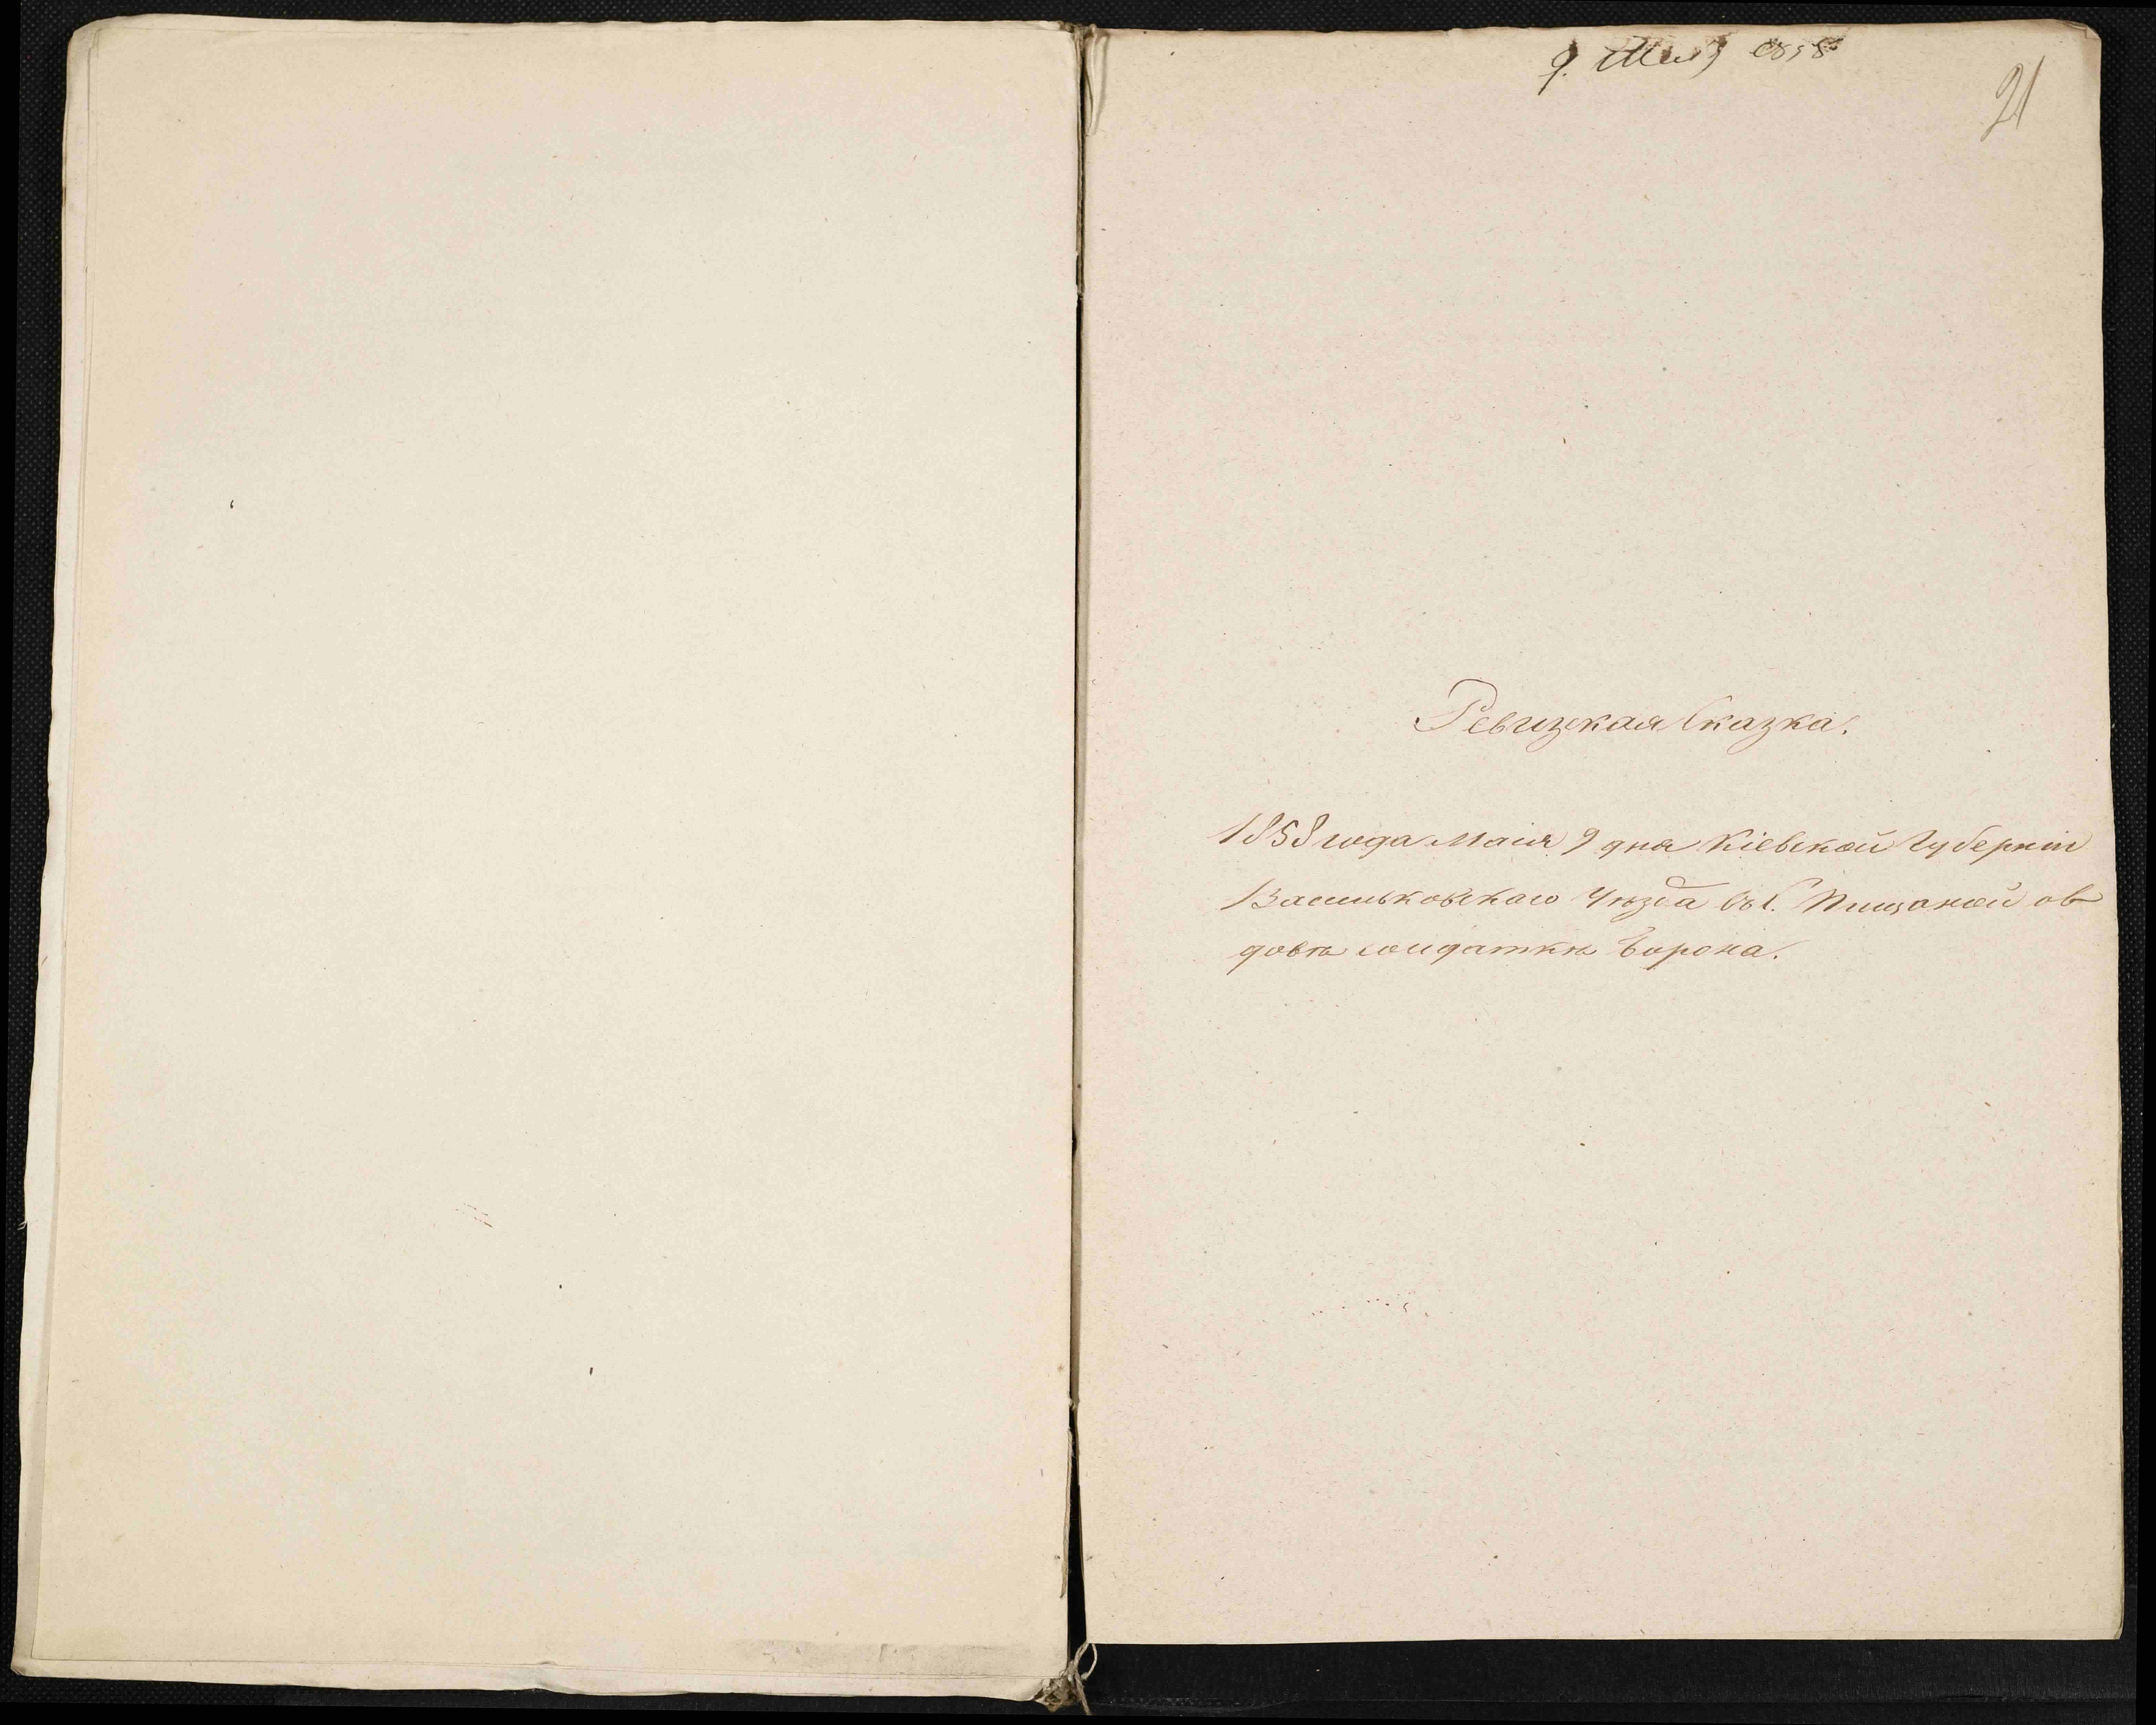 9. Мая 1858
21
Ревизкая Сказка.
1858 года Маія 9 дня Кіевской Губерніи
Васильковскаго Уѣзда въ С. Пищаной о в
довѣ солдаткѣ